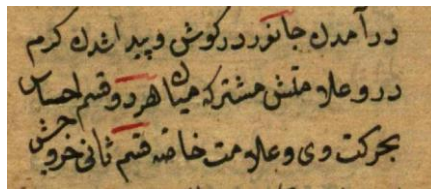 در آمدن جانور در گوش و پیدا شدن کرم
در و علامتش مشترکه میان هر دو قسم احساس
بحرکت وی و علامت خاصه قسم ثانی خروجش